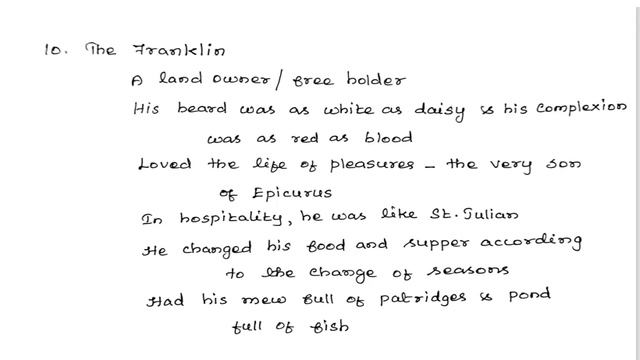 10. The Franklin
A land owner / free holder
His beard was as white as daisy & his complexion
was as red as blood
Loved the life of pleasures - the very son
of Epicurus
In hospitality, he was like St. Julian
He changed his food and supper according
to the change of seasons
Had his mew full of patridges & pond
full of fish